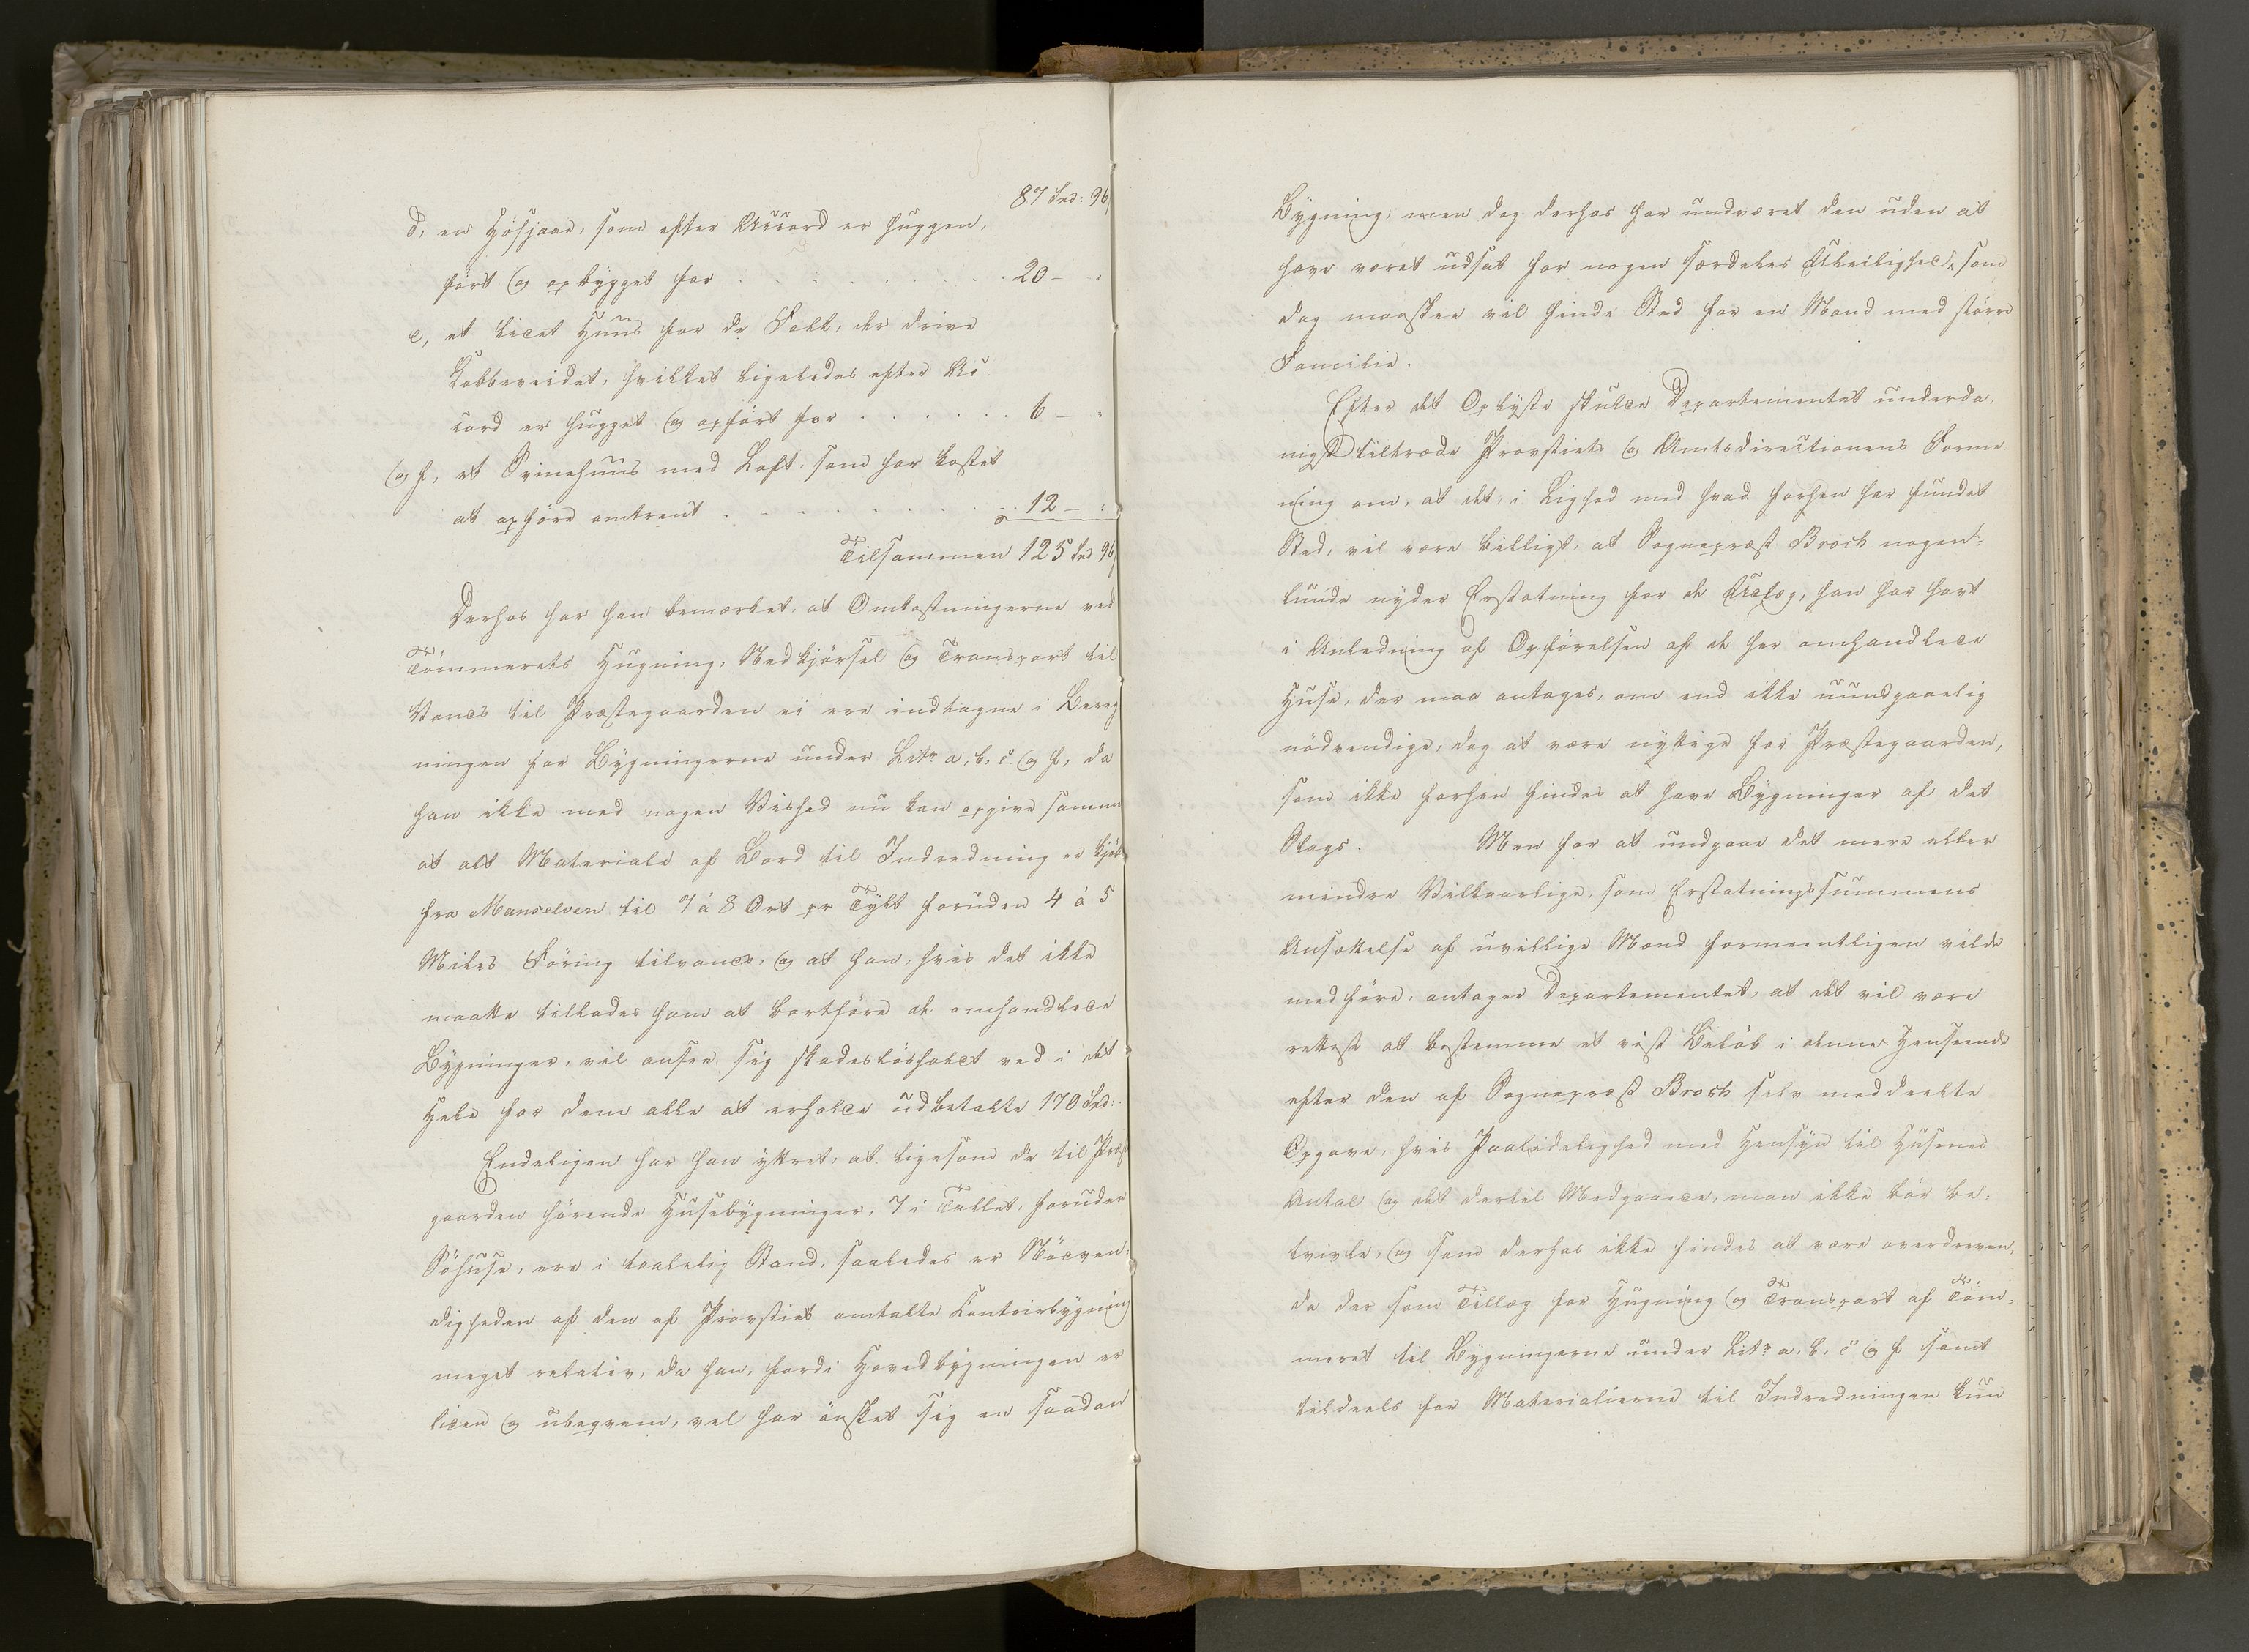 87 Spd: 96
d, en Høsjaae, som efter Accord er huggen,
ført og opbygget for . . . . . . . . . 20 –
e, et lidet Huus for de Folk, der drive
Kobbeveidet, hvilket ligeledes efter Ac-
cord er hugget og opført for . . . . . . 6 –
og f, et Svinehuus med Loft, som har kostet
at opføre omtrent . . . . . . . . . 12 –
Tilsammen 125 Spd 96
Derhos har han bemærket, at Omkostningerne ved
Tömmerets Hugning, Nedkjörsel og Transport til
Vands til Præstegaarden ei ere indtagne i Bereg
ningen for Bygningerne under Litr a, b, c og f, da
han ikke med nogen Vished nu kan opgive samme
at alt Materiale af Bord til Indredning er kjöbt
fra Manselven til 7 á 8 Ort pr Tylt foruden 4 á 5
Miles Föring tilvands, og at han, hvis det ikke
maatte tillades ham at bortföre de omhandlede
Bygninger, vil ansee sig skadeslösholdt ved i det
Hele for dem alle at erholde udbetalte 170 Spd:
Endeligen har han yttret, at ligesom de til Præste
gaarden hörende Husebygninger, 7 i Tallet, foruden
Söhuse, ere i taalelig Stand, saaledes er Nödven-
digheden af den af Provstiet omtalte Contoirbygning
meget relativ, da han, fordi Hovedbygningen er
liden og ubeqvem, vel har önsket sig en saadan
Bygning, men dog derhos har undværet den uden at
have været udsat for nogen særdeles Uleilighed, som
dog maaskee vil finde Sted for en Mand med större
Familie.
Efter det Oplyste skulde Departementet underda-
nigst tiltræde Provstiets og Amtsdirectionens Forme
ning om, at det, i Lighed med hvad forhen har fundet
Sted, vil være billigt, at Sognepræst Broch nogen-
lunde nyder Erstatning for de Udlæg, han har havt
i Anledning af Opförelsen af de her omhandlede
Huse, der maa antages, om end ikke uundgaaelig
nödvendige, dog at være nyttige for Præstegaarden,
som ikke forhen findes at have Bygninger af det
Slags. Men for at undgaae det mere eller
mindre Vilkaarlige, som Erstatningssummens
Ansættelse af uvillige Mænd formeentligen vilde
medföre, antager Departementet, at det vil være
rettest at bestemme et vist Belöb i denne Henseende
efter den af Sognepræst Broch selv meddeelte
Opgave, hvis Paalidelighed med Hensyn til Husenes
Antal og det dertil Medgaaede, man ikke bör be-
tvivle, og som derhos ikke findes at være overdreven,
da der som Tillæg for Hugning og Transport af Töm-
meret til Bygningerne under Litr a, b, c og f samt
tildeels for Materialierne til Indredningen kun